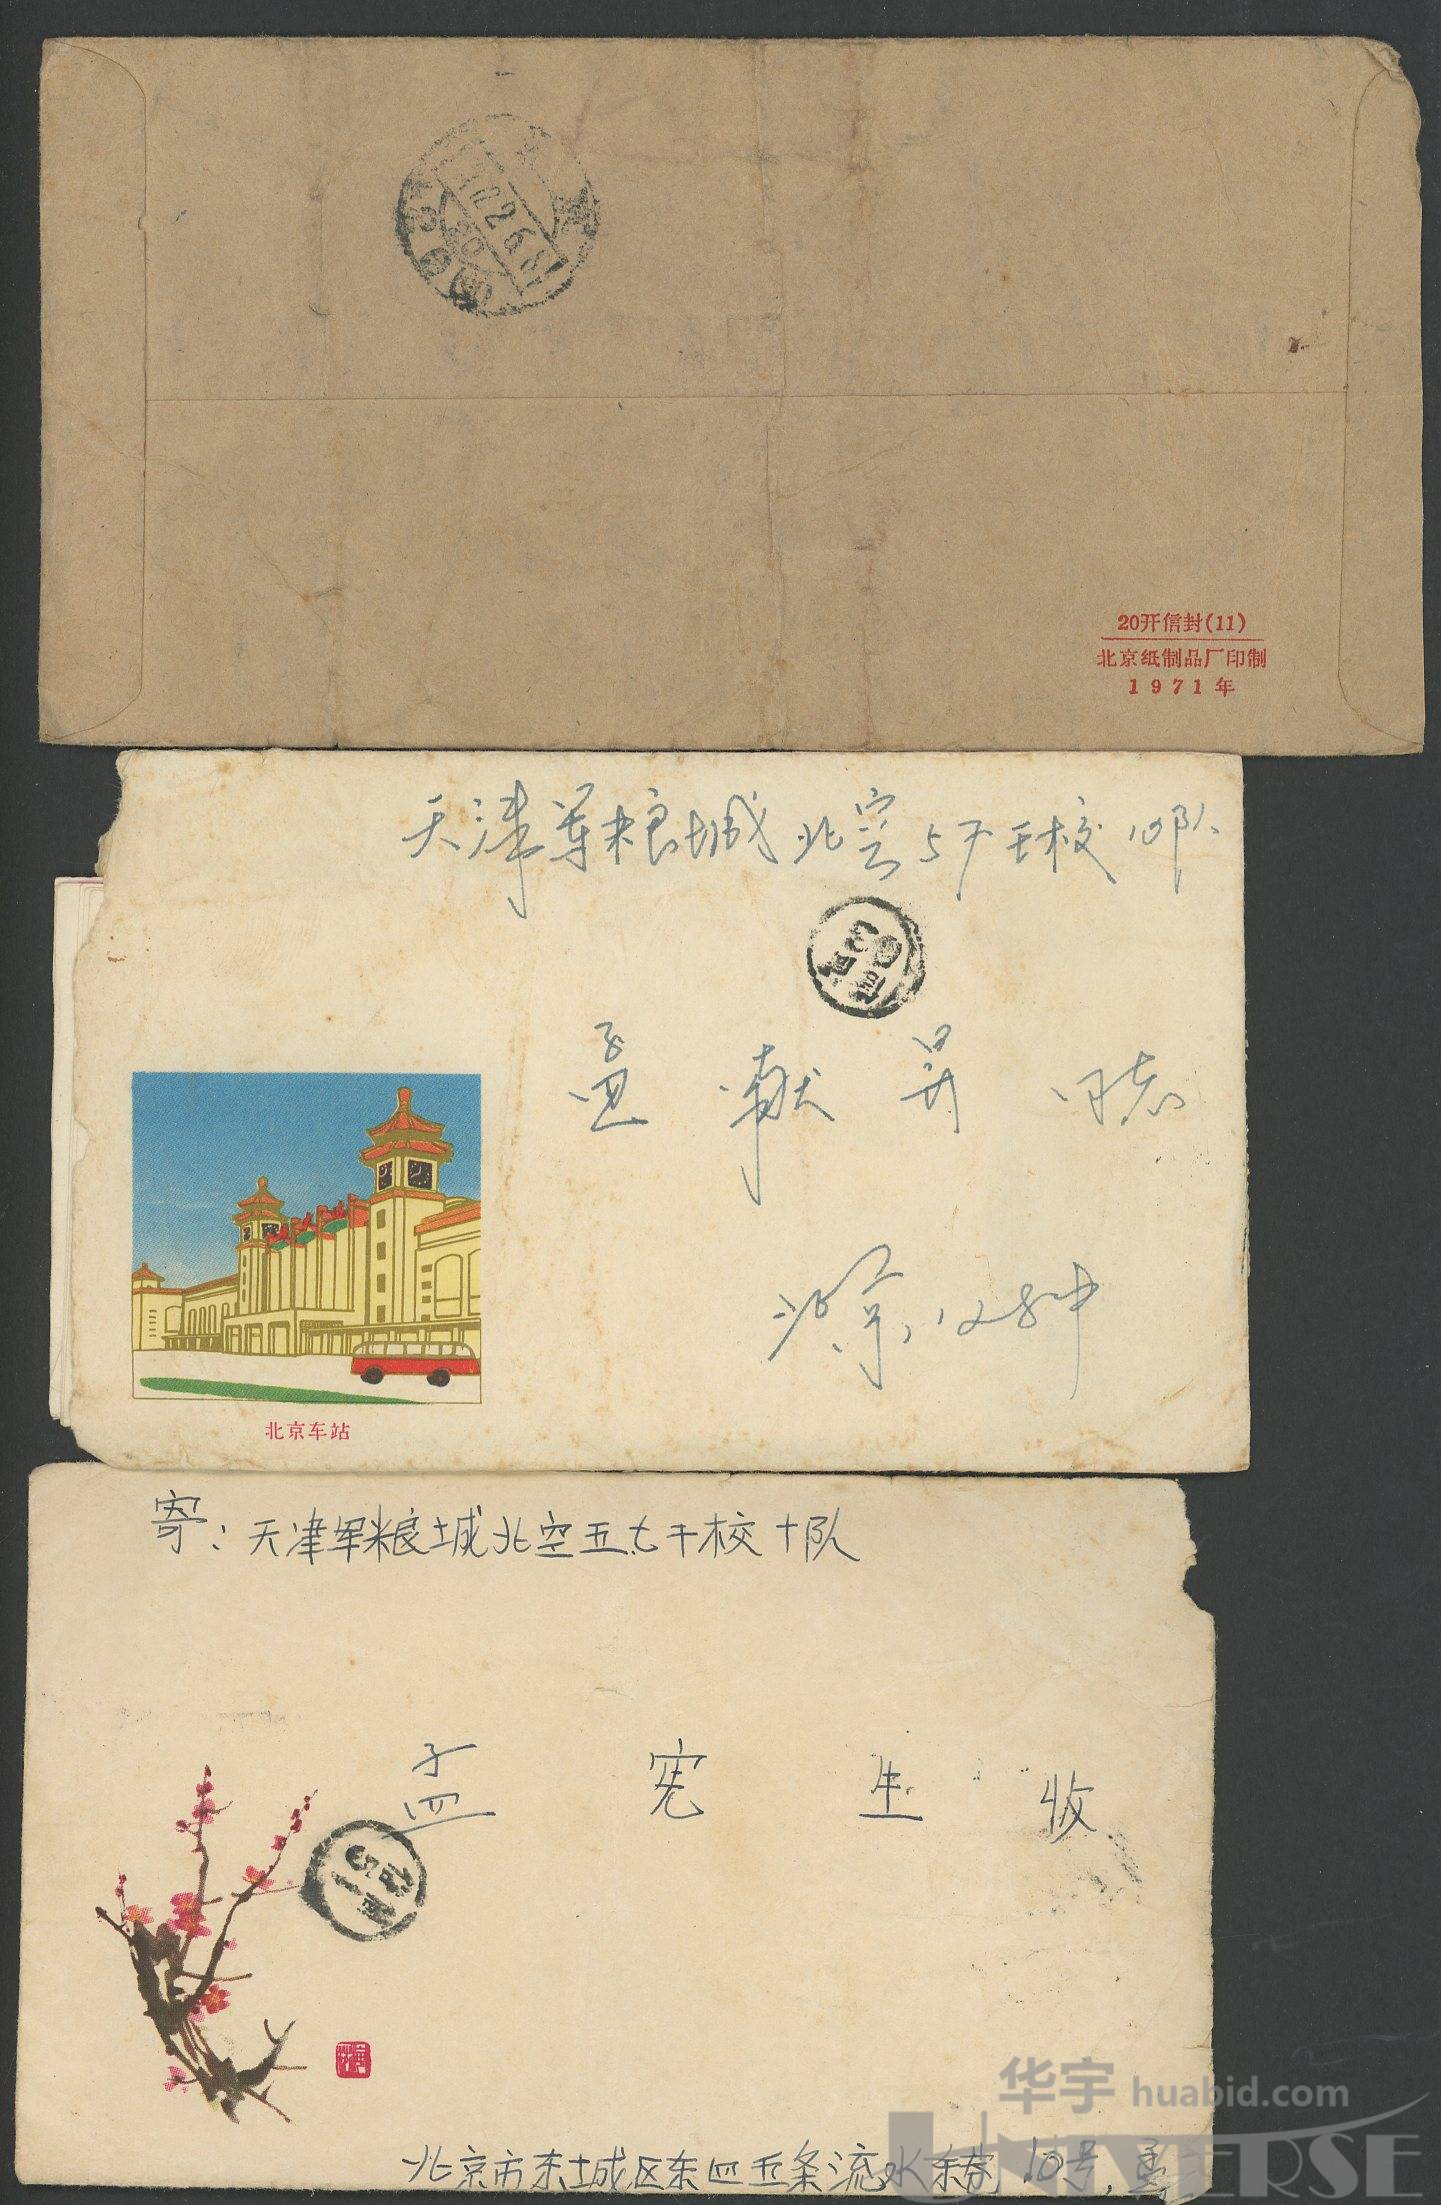 20开信封(11)
北京纸制品厂印制
1971年
天津军粮城北空57干校10队
孟献昇同志
北京,1284
北京车站
寄:天津军粮城北空五七干校十队
孟宪生收
北京市东城区东四五条流水东巷10号,孟
华宇 huabid.com
UNIVERSE